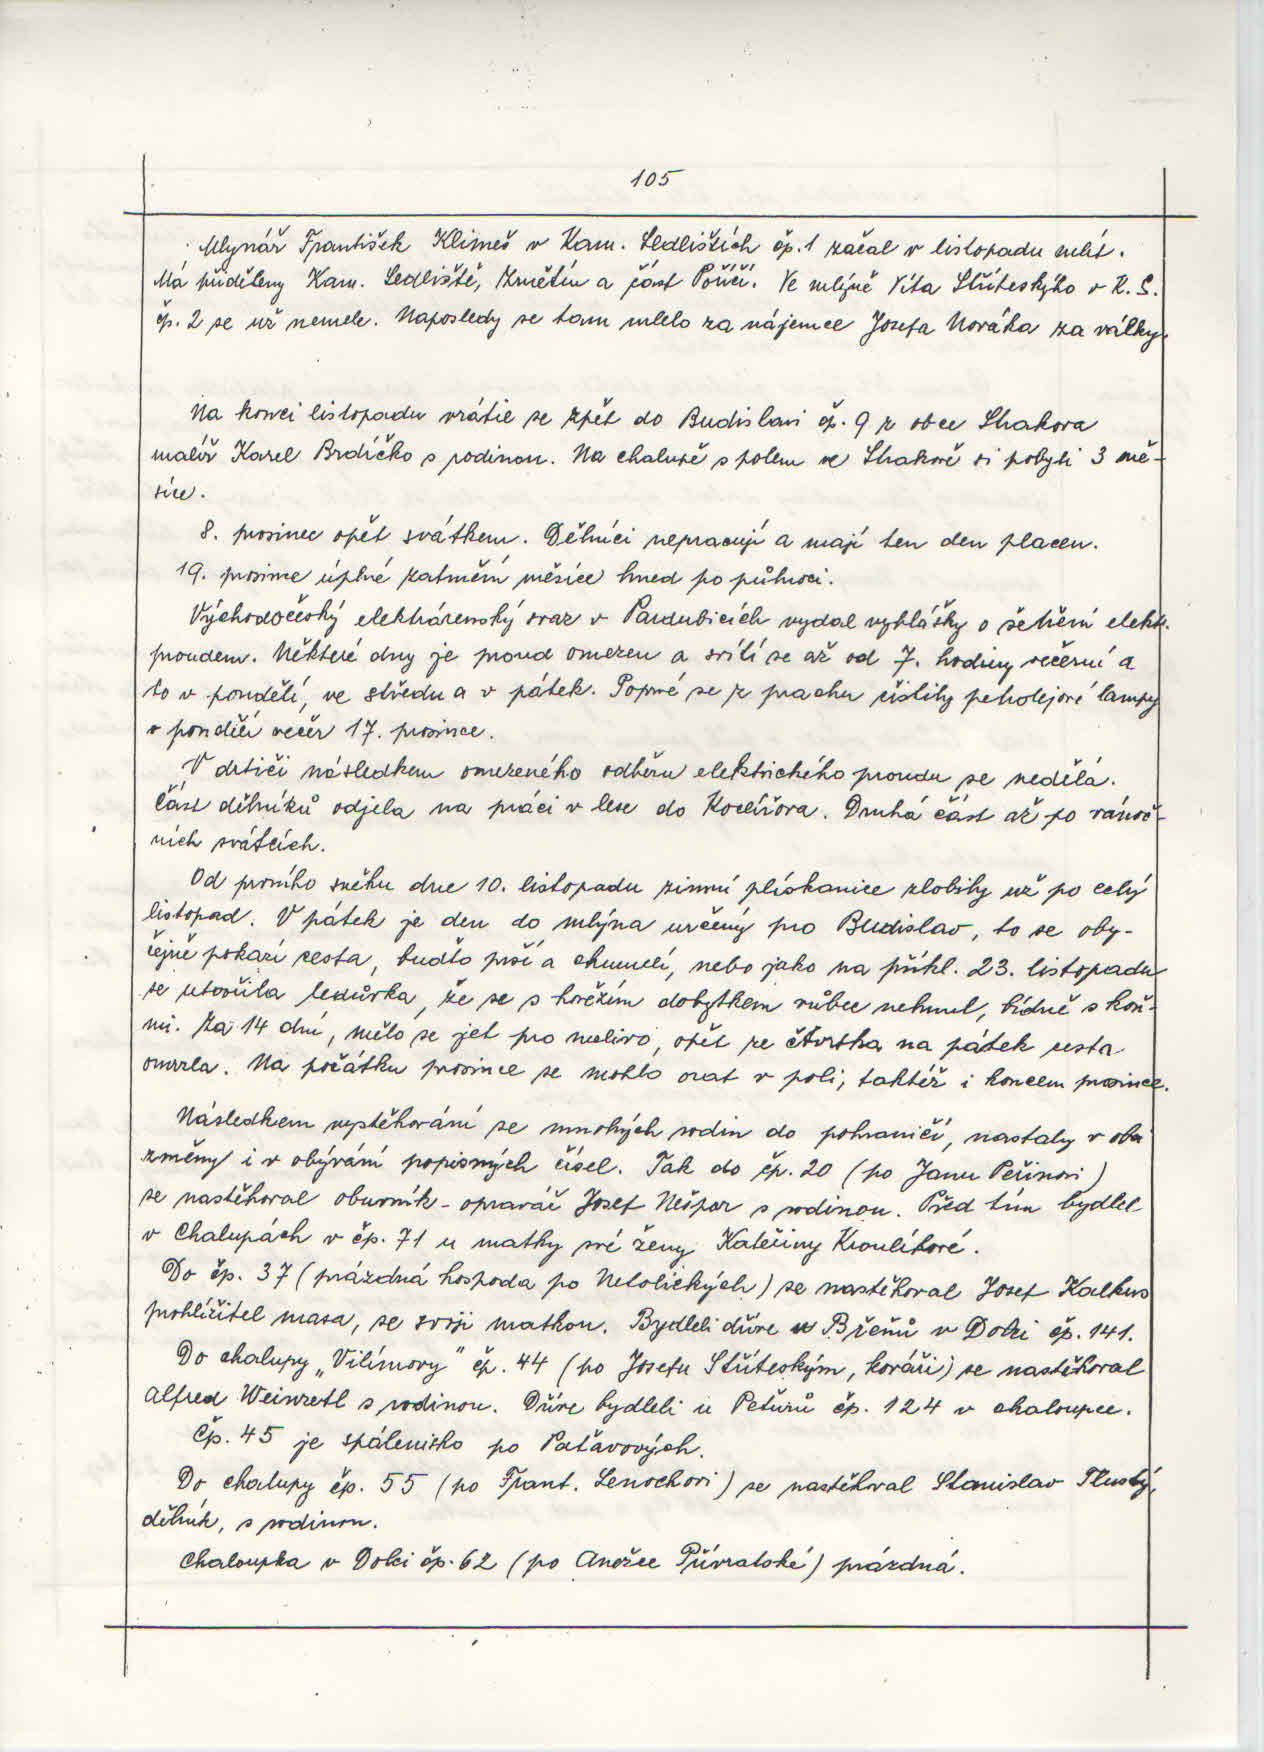 105
Mlynář František Klimeš v Kam. Sedlištích čp. 1 začal v listopadu mlít.
Má přiděleny Kam. Sedliště, Zrnětín a část Poříčí. Ve mlýně Víta Stříteského v K. S.
čp. 2 se už nemele. Naposledy se tam mlelo za nájemce Josefa Nováka za války.
Na konci listopadu vrátil se zpět do Budislavi čp. 9 z obce Stakora
malíř Karel Brdíčko s rodinou. Na chalupě s polem ve Stakoře si pobyli 3 mě-
síce.
8. prosinec opět svátkem. Dělníci nepracují a mají ten den placen.
19. prosince úplné zatmění měsíce hned po půlnoci.
Východočeský elektrárenský svaz v Pardubicích vydal vyhlášky o šetření elektr.
proudem. Některé dny je proud omezen a svítí se až od 7. hodiny večerní a
to v pondělí, ve středu a v pátek. Poprvé se z prachu čistily petrolejové lampy
v pondělí večer 17. prosince.
V drtiči následkem omezeného odběru elektrického proudu se nedělá.
Část dělníků odjela na práci v lese do Kocířova. Druhá část až po vánoč-
ních svátcích.
Od prvního sněhu dne 10. listopadu zimní plískanice zlobily už po celý
listopad. V pátek je den do mlýna určený pro Budislav, to se oby-
čejně pokazí cesta, buďto prší a chumelí, nebo jako na příkl. 23. listopadu
se utvořila ledůvka, že se s hovězím dobytkem vůbec nehnul, bídně s koň-
mi. Za 14 dní, mělo se jet pro melivo, opět ze čtvrtka na pátek cesta
omrzla. Na počátku prosince se mohlo orat v poli, taktéž i koncem prosince.
Následkem vystěhování se mnohých rodin do pohraničí, nastaly v obci
změny i v obývání popisných čísel. Tak do čp. 20 (po Janu Peřinovi)
se nastěhoval obuvník - opravář Josef Nešpor s rodinou. Před tím bydlel
v Chalupách v čp. 71 u matky své ženy Kateřiny Kroulíkové.
Do čp. 37 (prázdná hospoda po Netolických) se nastěhoval Josef Kalkus
prohlížitel masa, se svojí matkou. Bydleli dříve u Břeňů v Dolci čp. 141.
Do chalupy „Vilímovy" čp. 44 (po Josefu Stříteským, kováři) se nastěhoval
Alfred Weinzetl s rodinou. Dříve bydleli u Petürů čp. 124 v chaloupce.
Čp. 45 je spálenisko po Paťavových.
Do chalupy čp. 55 (po Frant. Lenochovi) se nastěhoval Stanislav Tlustý,
dělník, s rodinou.
Chaloupka v Dolci čp. 62 (po Anežce Přívratské) prázdná.